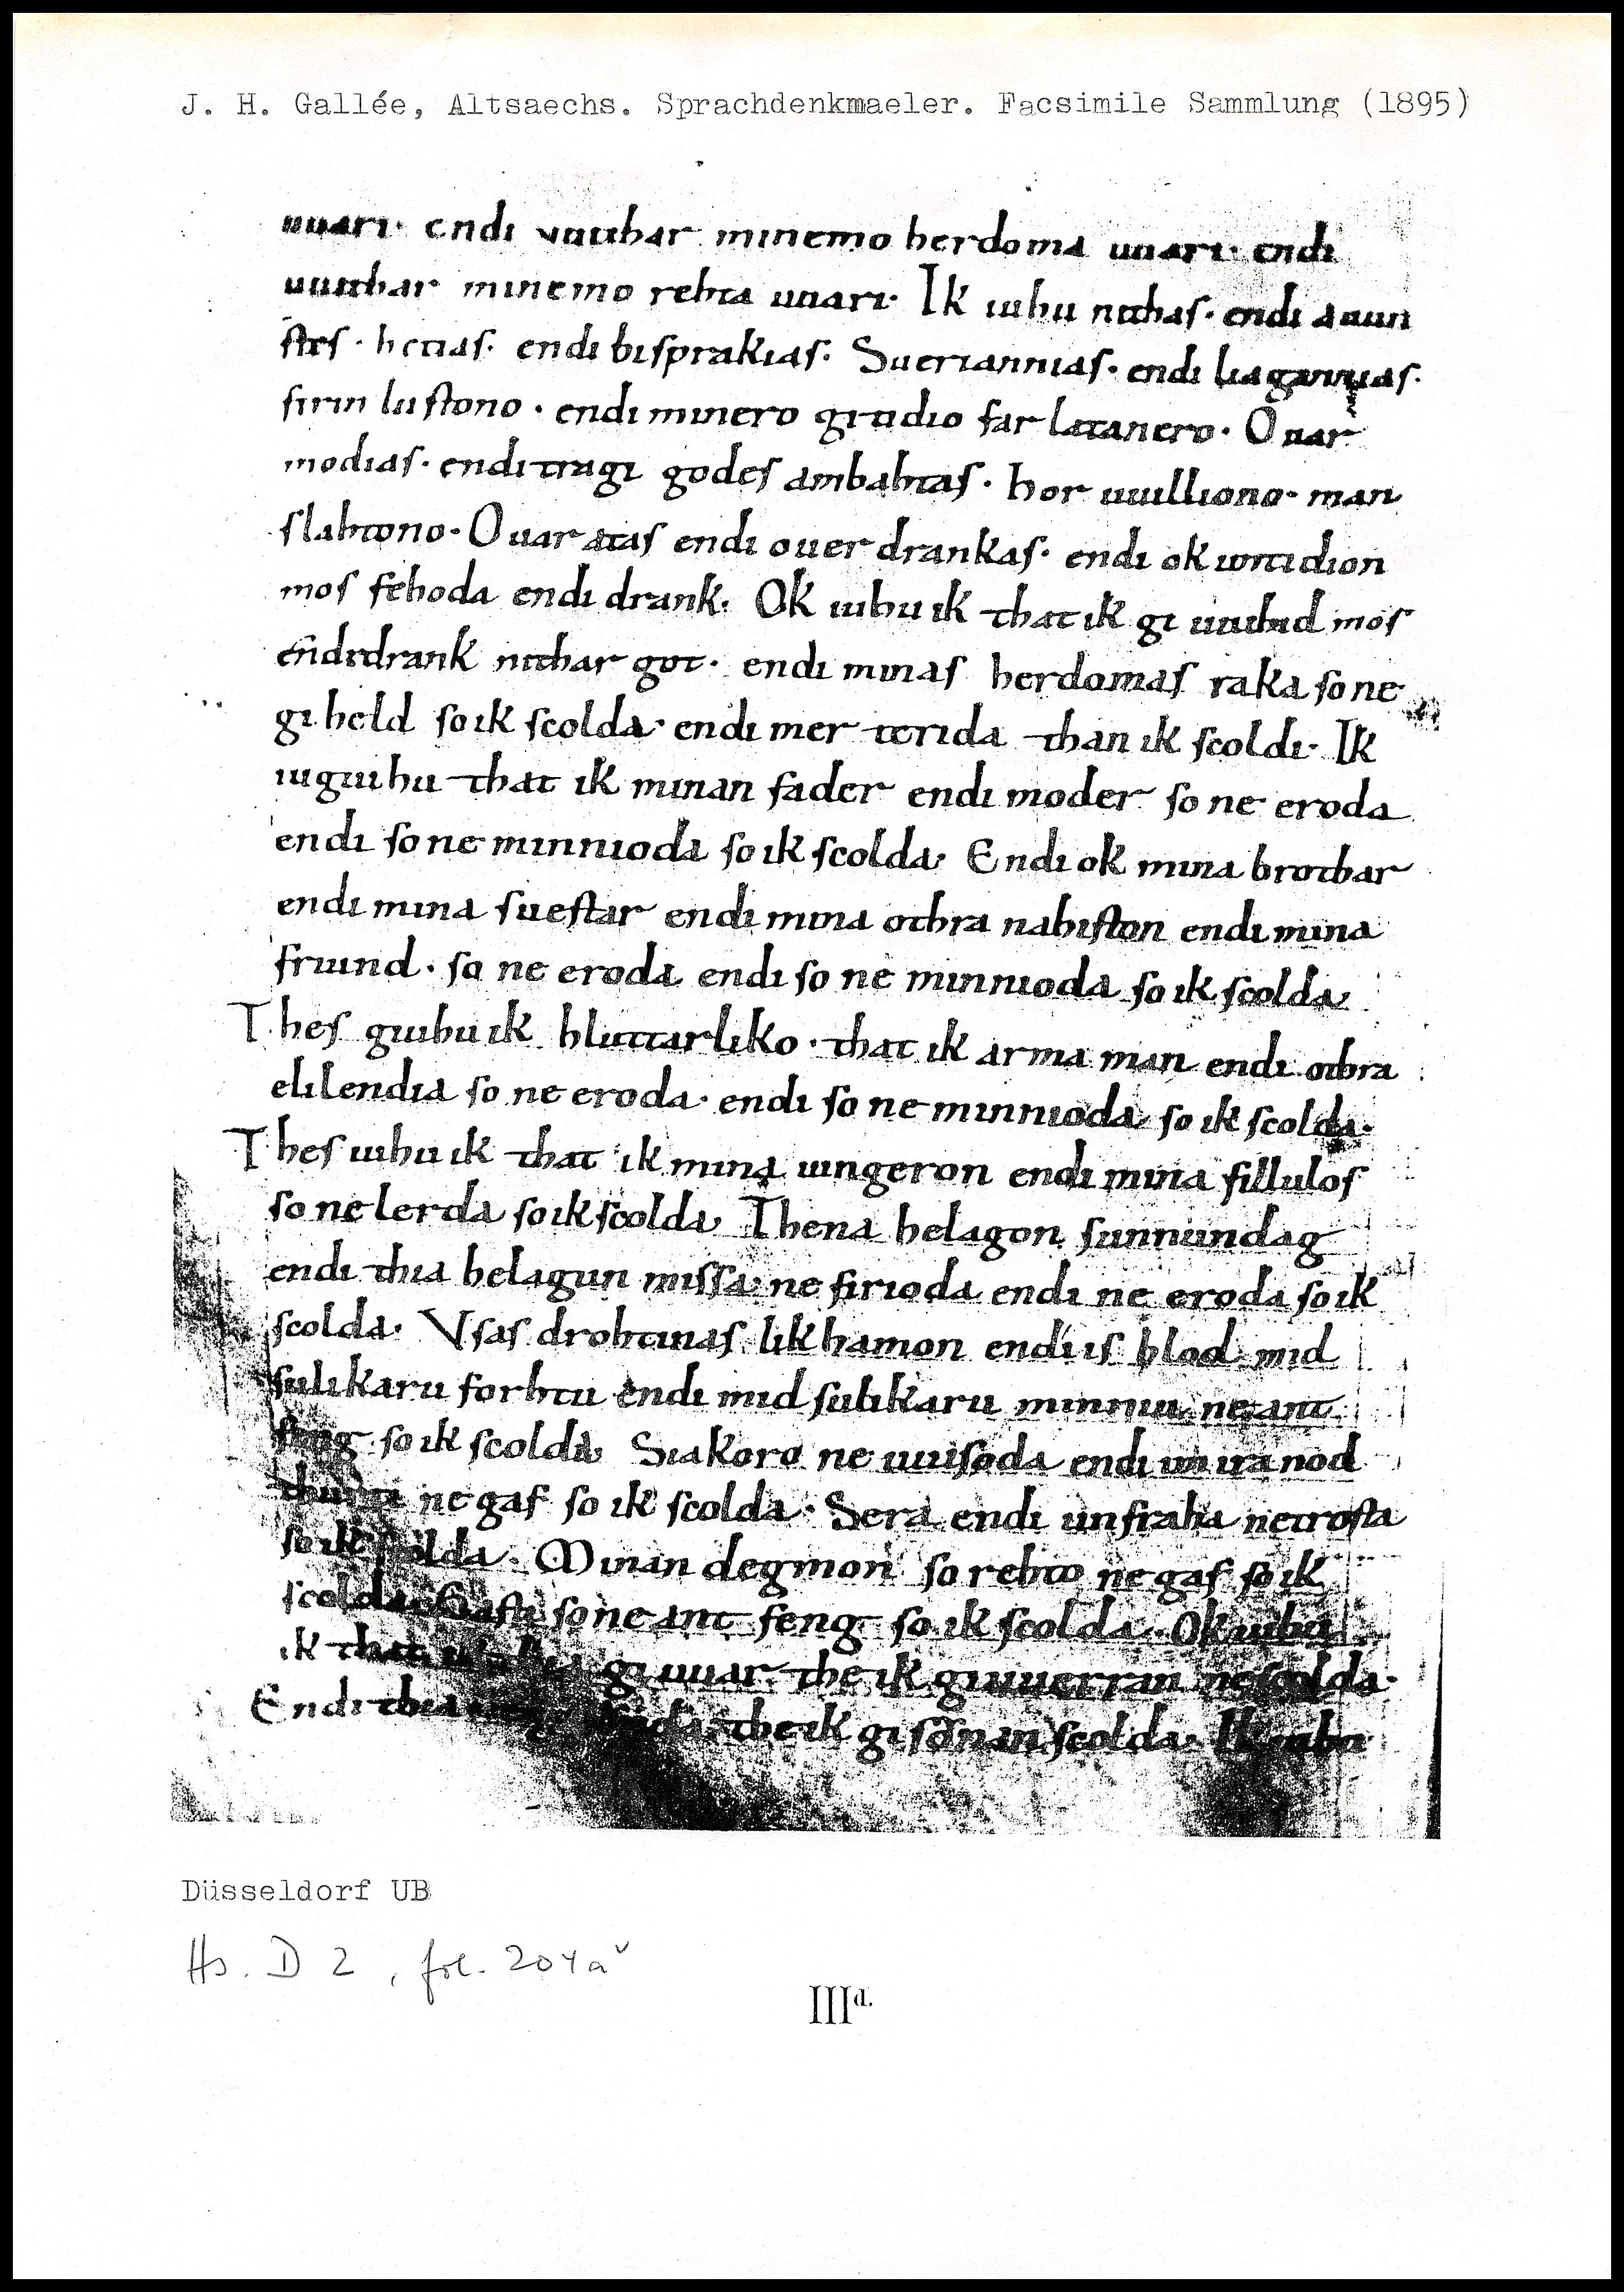 J. H. Gallée, Altsaechs. Sprachdenkmaeler. Facsimile Sammlung (1895)
uuari· endi uuithar minemo herdoma uuari· endi
uuithar minemo rehta uuari· Ik iuhu nithas· endi auun
stes· hetias· endi bisprakias· Sueriannias· endi liagannias·
firin lustono· endi minero gitidio farlatanero· Ouar
modias· endi tragi godes ambahtas· hor uuilliono· man
slahtono· Ouar atas endi ouerdrankas· endi ok untidion
mos fehoda endi drank· Ok iuhu ik that ik giuuihid mos
endi drank nithar got· endi minas herdomas raka so ne
giheld so ik scolda· endi mer terida than ik scoldi· Ik
iugiuhu that ik minan fader endi moder so ne eroda
endi so ne minnioda so ik scolda· Endi ok mina brothar
endi mina suestar endi mina othra nahiston endi mina
friund· so ne eroda endi so ne minnioda so ik scolda·
Thes giuhu ik hluttarliko· that ik arma man endi othra
elilendia so ne eroda· endi so ne minnioda so ik scolda·
Thes iuhu ik that ik mina iungeron endi mina fillulos
so ne lerda so ik scolda· Thena helagon sunnundag
endi thia helagun missa· ne firioda endi ne eroda so ik
scolda· Vsas drohtinas likhamon endi is blod mid
sulikaru forhtu endi mid sulikaru minniu· ne ant
feng so ik scolda· Siakoro ne uuisoda endi im ira nod
thurti ne gaf so ik scolda· Sera endi unfraha ne trosta
so ik scolda· Minan degmon so rehto ne gaf so ik
scolda· Gasti so ne ant feng so ik scolda· Ok iuhu
ik that ik thia giuuar the ik giuuerran ne scolda·
Endi thia the ik gisonan scolda· Ik iuhu
Düsseldorf UB
Hs. D 2, fol. 204aᵛ
IIIᵈ·